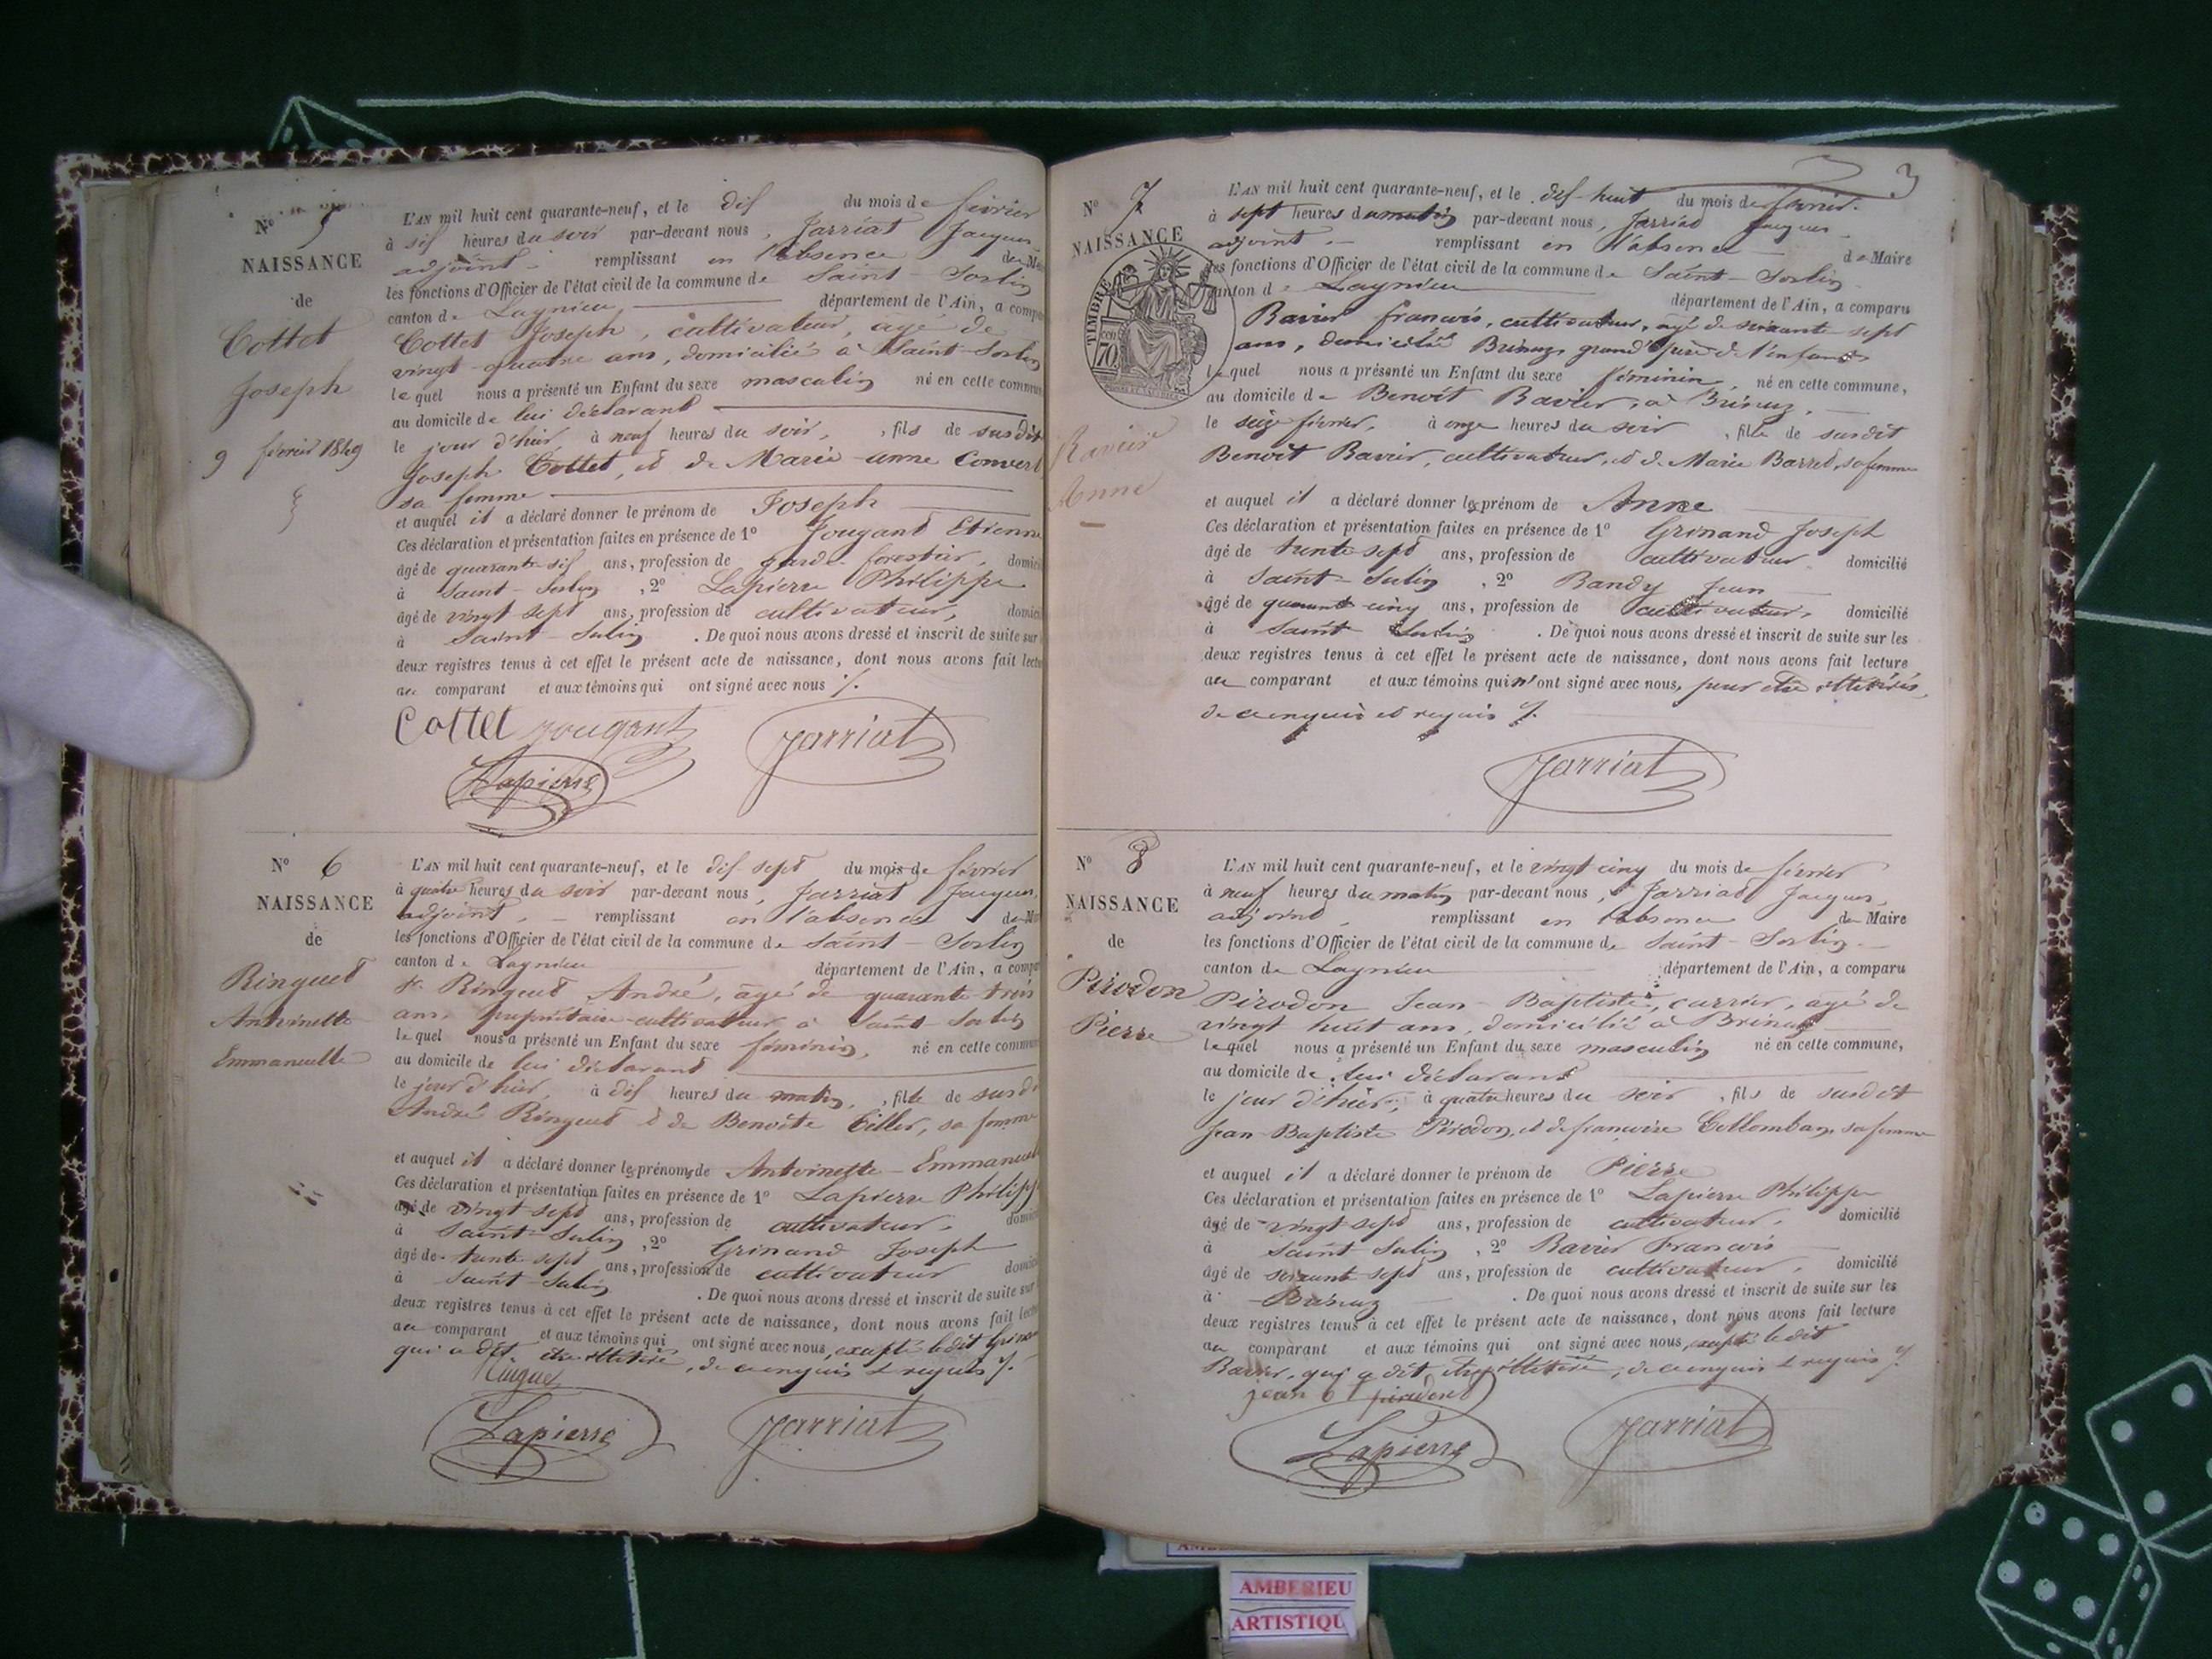 N° 5
NAISSANCE
de
Cottet
Joseph
9 février 1849
L'AN mil huit cent quarante-neuf, et le dix du mois de février
à six heures du soir par-devant nous, Jarriat Jacques
adjoint remplissant en l'absence du M
les fonctions d'Officier de l'état civil de la commune de Saint-Sorlin
canton de Lagnieu département de l'Ain, a compa
Cottet Joseph, cultivateur, agé de
vingt-quatre ans, domicilié à Saint-Sorlin
lequel nous a présenté un Enfant du sexe masculin né en cette commun
au domicile de lui déclarant
le jour d'hier, à neuf heures du soir, , fils de susdit
Joseph Cottet, et de Marie-anne Convert
sa femme
et auquel il a déclaré donner le prénom de Joseph
Ces déclaration et présentation faites en présence de 1° Jougant Etienne
âgé de quarante-six ans, profession de garde-forestier, domici
à Saint-Sorlin , 2° Lapierre Philippe
âgé de vingt sept ans, profession de cultivateur, domici
à Saint-Sorlin . De quoi nous avons dressé et inscrit de suite sur
deux registres tenus à cet effet le présent acte de naissance, dont nous avons fait lectu
au comparant et aux témoins qui ont signé avec nous ./.
Cottet Jougant Jarriat
Lapierre
N° 6
NAISSANCE
de
Ringuet
Antoinette
Emmanuelle
L'AN mil huit cent quarante-neuf, et le dix-sept du mois de février
à quatre heures du soir par-devant nous, Jarriat Jacques,
adjoint, remplissant en l'absence du M
les fonctions d'Officier de l'état civil de la commune de Saint-Sorlin
canton de Lagnieu département de l'Ain, a compa
Sr Ringuet André, âgé de quarante-trois
ans, propriétaire-cultivateur à Saint-Sorlin
lequel nous a présenté un Enfant du sexe féminin, né en cette commun
au domicile de lui déclarant
le jour d'hier, à dix heures du matin, , fille de susdi
André Ringuet & de Benoîte Tiller, sa femme
et auquel il a déclaré donner les prénoms de Antoinette-Emmanuell
Ces déclaration et présentation faites en présence de 1° Lapierre Philipp
âgé de vingt sept ans, profession de cultivateur, domici
à Saint-Sorlin , 2° Grinand Joseph
âgé de trente sept ans, profession de cultivateur domici
à Saint-Sorlin . De quoi nous avons dressé et inscrit de suite sur
deux registres tenus à cet effet le présent acte de naissance, dont nous avons fait lect
au comparant et aux témoins qui ont signé avec nous, excepté ledit Grinan
qui a dit être illettré, de ce enquis & requis ./.
Lapierre Jarriat
3
N° 7
NAISSANCE
TIMBRE
70
Ravier
Anne
L'AN mil huit cent quarante-neuf, et le dix-huit du mois de février
à sept heures du matin par-devant nous, Jarriat Jacques
adjoint. remplissant en l'absence de Maire
des fonctions d'Officier de l'état civil de la commune de Saint-Sorlin
canton de Lagnieu département de l'Ain, a comparu
Ravier francois, cultivateur, agé de soixante sept
ans, domicilié Brénaz grand père de l'enfant
lequel nous a présenté un Enfant du sexe féminin, né en cette commune,
au domicile de Benoit Ravier, à Brénaz,
le seize février, à onze heures du soir , fille de susdit
Benoit Ravier, cultivateur, et de Marie Barret, sa femme
et auquel il a déclaré donner le prénom de Anne
Ces déclaration et présentation faites en présence de 1° Grinand Joseph
âgé de trente sept ans, profession de cultivateur domicilié
à Saint-Sorlin , 2° Bandy Jean
âgé de quarante cinq ans, profession de cultivateur, domicilié
à Saint Sorlin . De quoi nous avons dressé et inscrit de suite sur les
deux registres tenus à cet effet le présent acte de naissance, dont nous avons fait lecture
au comparant et aux témoins qui n'ont signé avec nous, pour être illettrés,
de ce enquis et requis ./.
Jarriat
N° 8
NAISSANCE
de
Pirodon
Pierre
L'AN mil huit cent quarante-neuf, et le vingt cinq du mois de février
à neuf heures du matin par-devant nous, Jarriat Jacques,
adjoint, remplissant en l'absence du Maire
les fonctions d'Officier de l'état civil de la commune de Saint-Sorlin
canton de Lagnieu département de l'Ain, a comparu
Pirodon Jean-Baptiste, carrier, agé de
vingt huit ans, domicilié à Brénaz
lequel nous a présenté un Enfant du sexe masculin né en cette commune,
au domicile de lui déclarant
le jour d'hier, à quatre heures du soir , fils de susdit
Jean-Baptiste Pirodon, et de francoise Collomban, sa femme
et auquel il a déclaré donner le prénom de Pierre
Ces déclaration et présentation faites en présence de 1° Lapierre Philippe
âgé de vingt sept ans, profession de cultivateur, domicilié
à Saint Sorlin , 2° Ravier Francois
âgé de soixante sept ans, profession de cultivateur, domicilié
à Brénaz . De quoi nous avons dressé et inscrit de suite sur les
deux registres tenus à cet effet le présent acte de naissance, dont nous avons fait lecture
au comparant et aux témoins qui ont signé avec nous, excepté ledit
Ravier, qui a dit être illettré, de ce enquis & requis ./.
jean bt pirodon
Lapierre Jarriat
AMBERIEU
ARTISTIQU